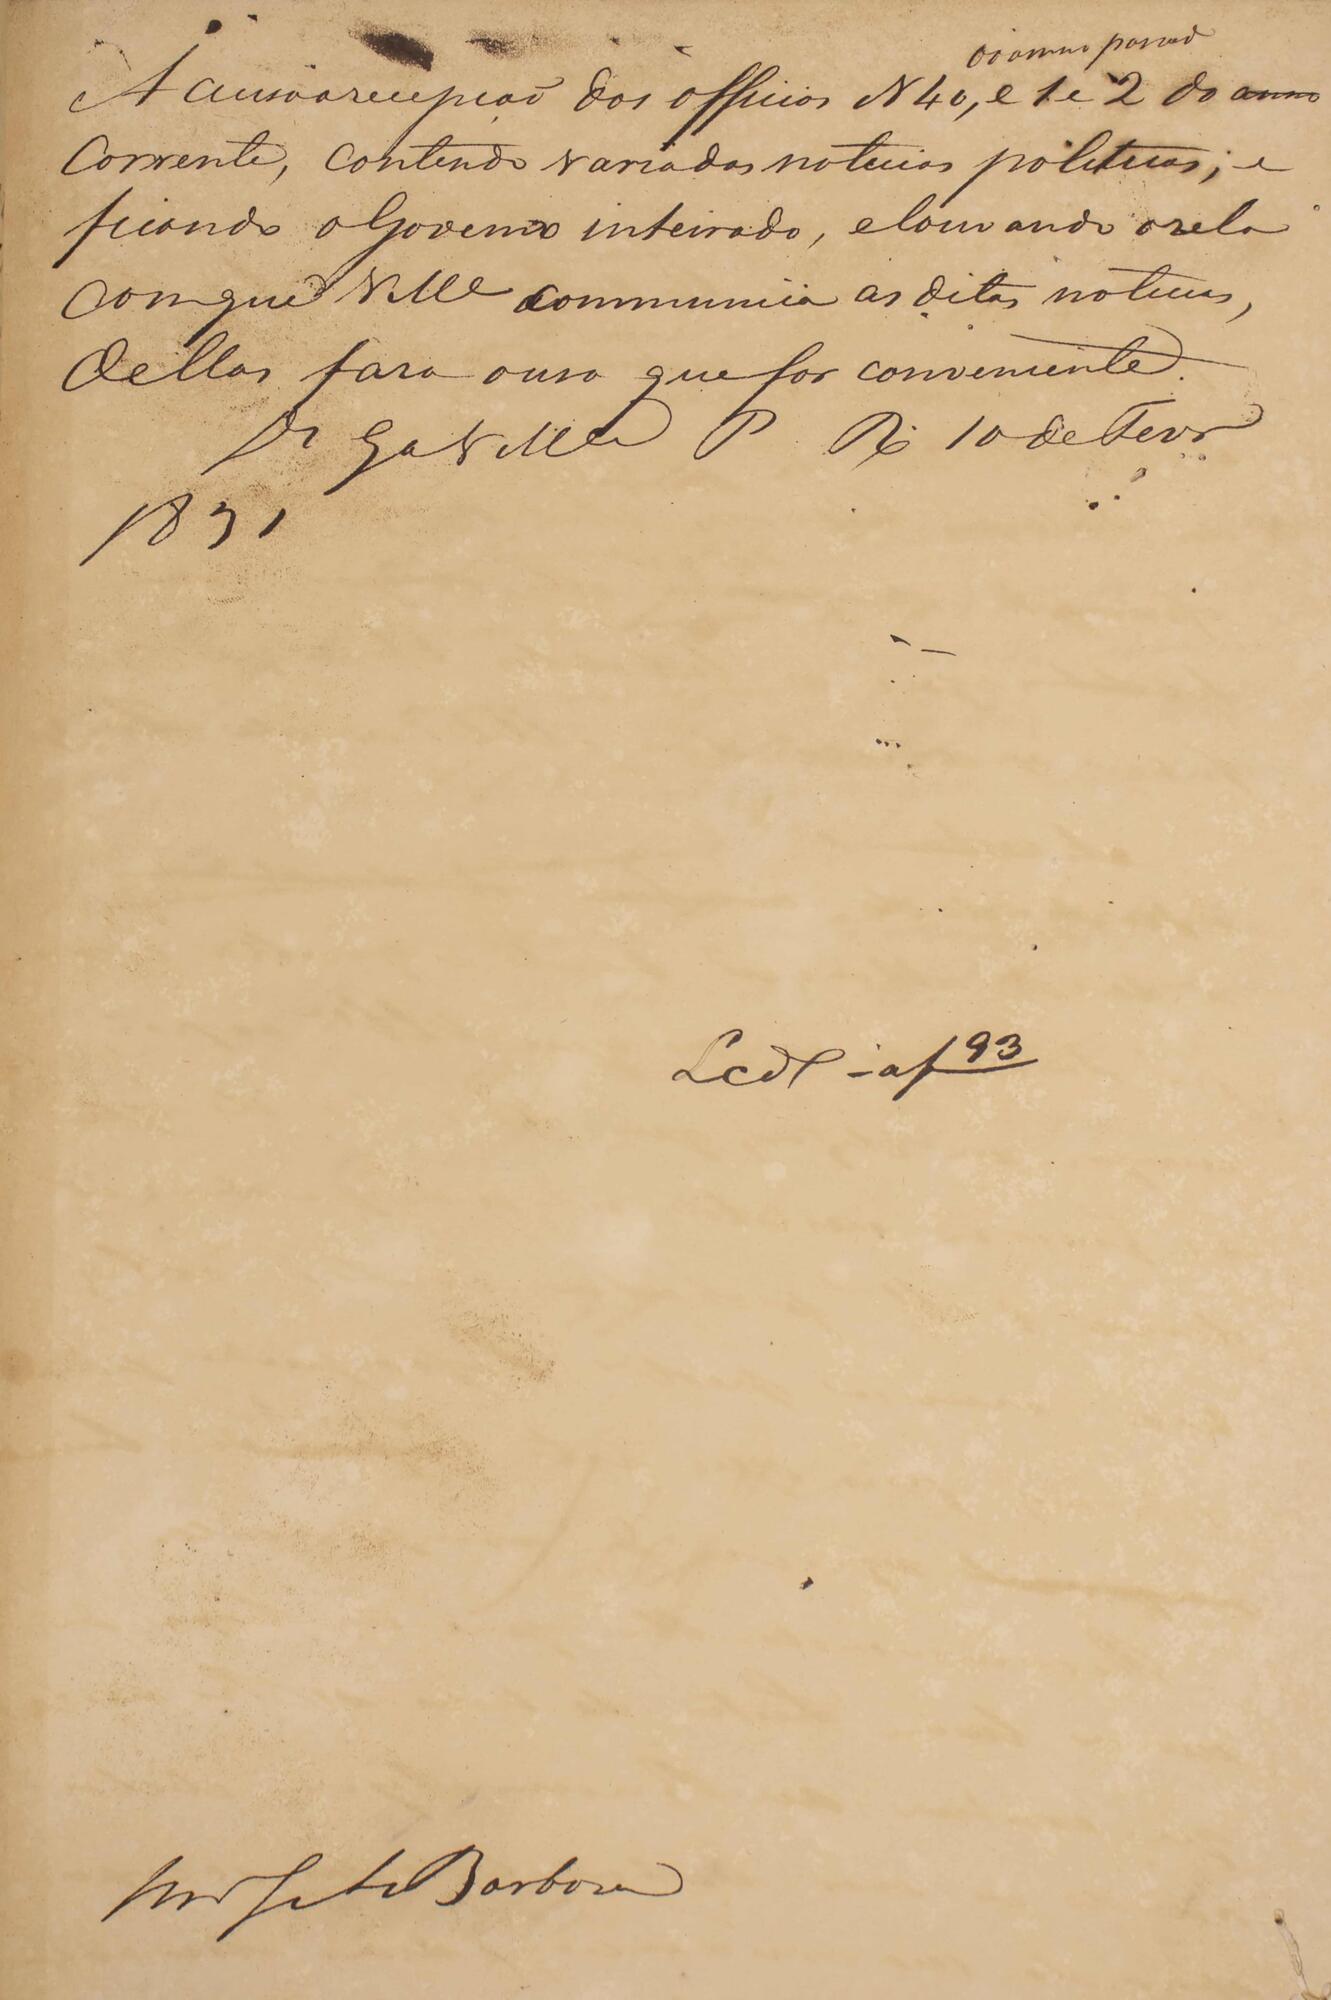 do anno passad
Acuso a recepçaõ dos officios N 40, e 1 e 2 do anno
Corrente, contendo variadas noticias politicas; e
ficando o Governo inteirado, e louvando o zelo
com que V Mce communica as ditas noticias,
dellas fara o uso que for conveniente.
Ds Ge V Mce P Rº 10 de Fevrº
1831
L c dl - a f 93
Barbosa